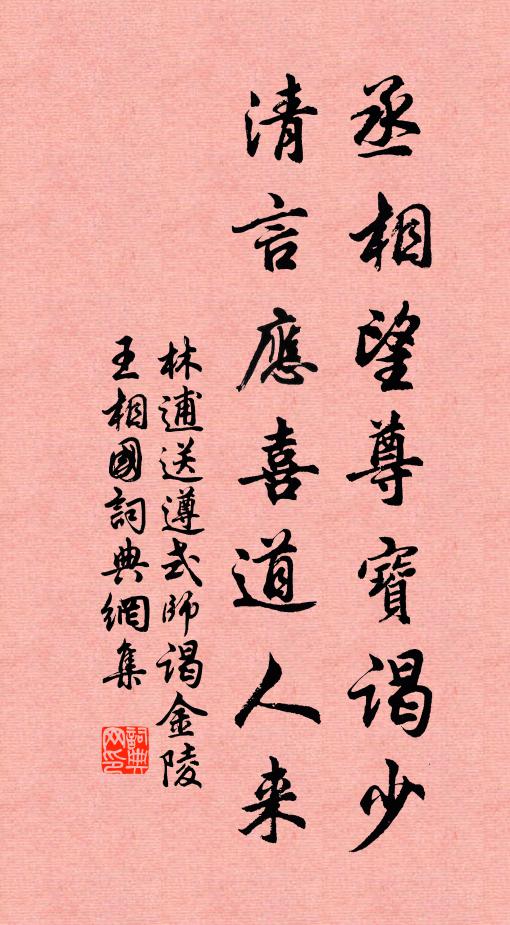 丞相望尊賓謁少
清言應喜道人来
林逋送遵式師謁金陵
王相國詞典網集
詞典网印